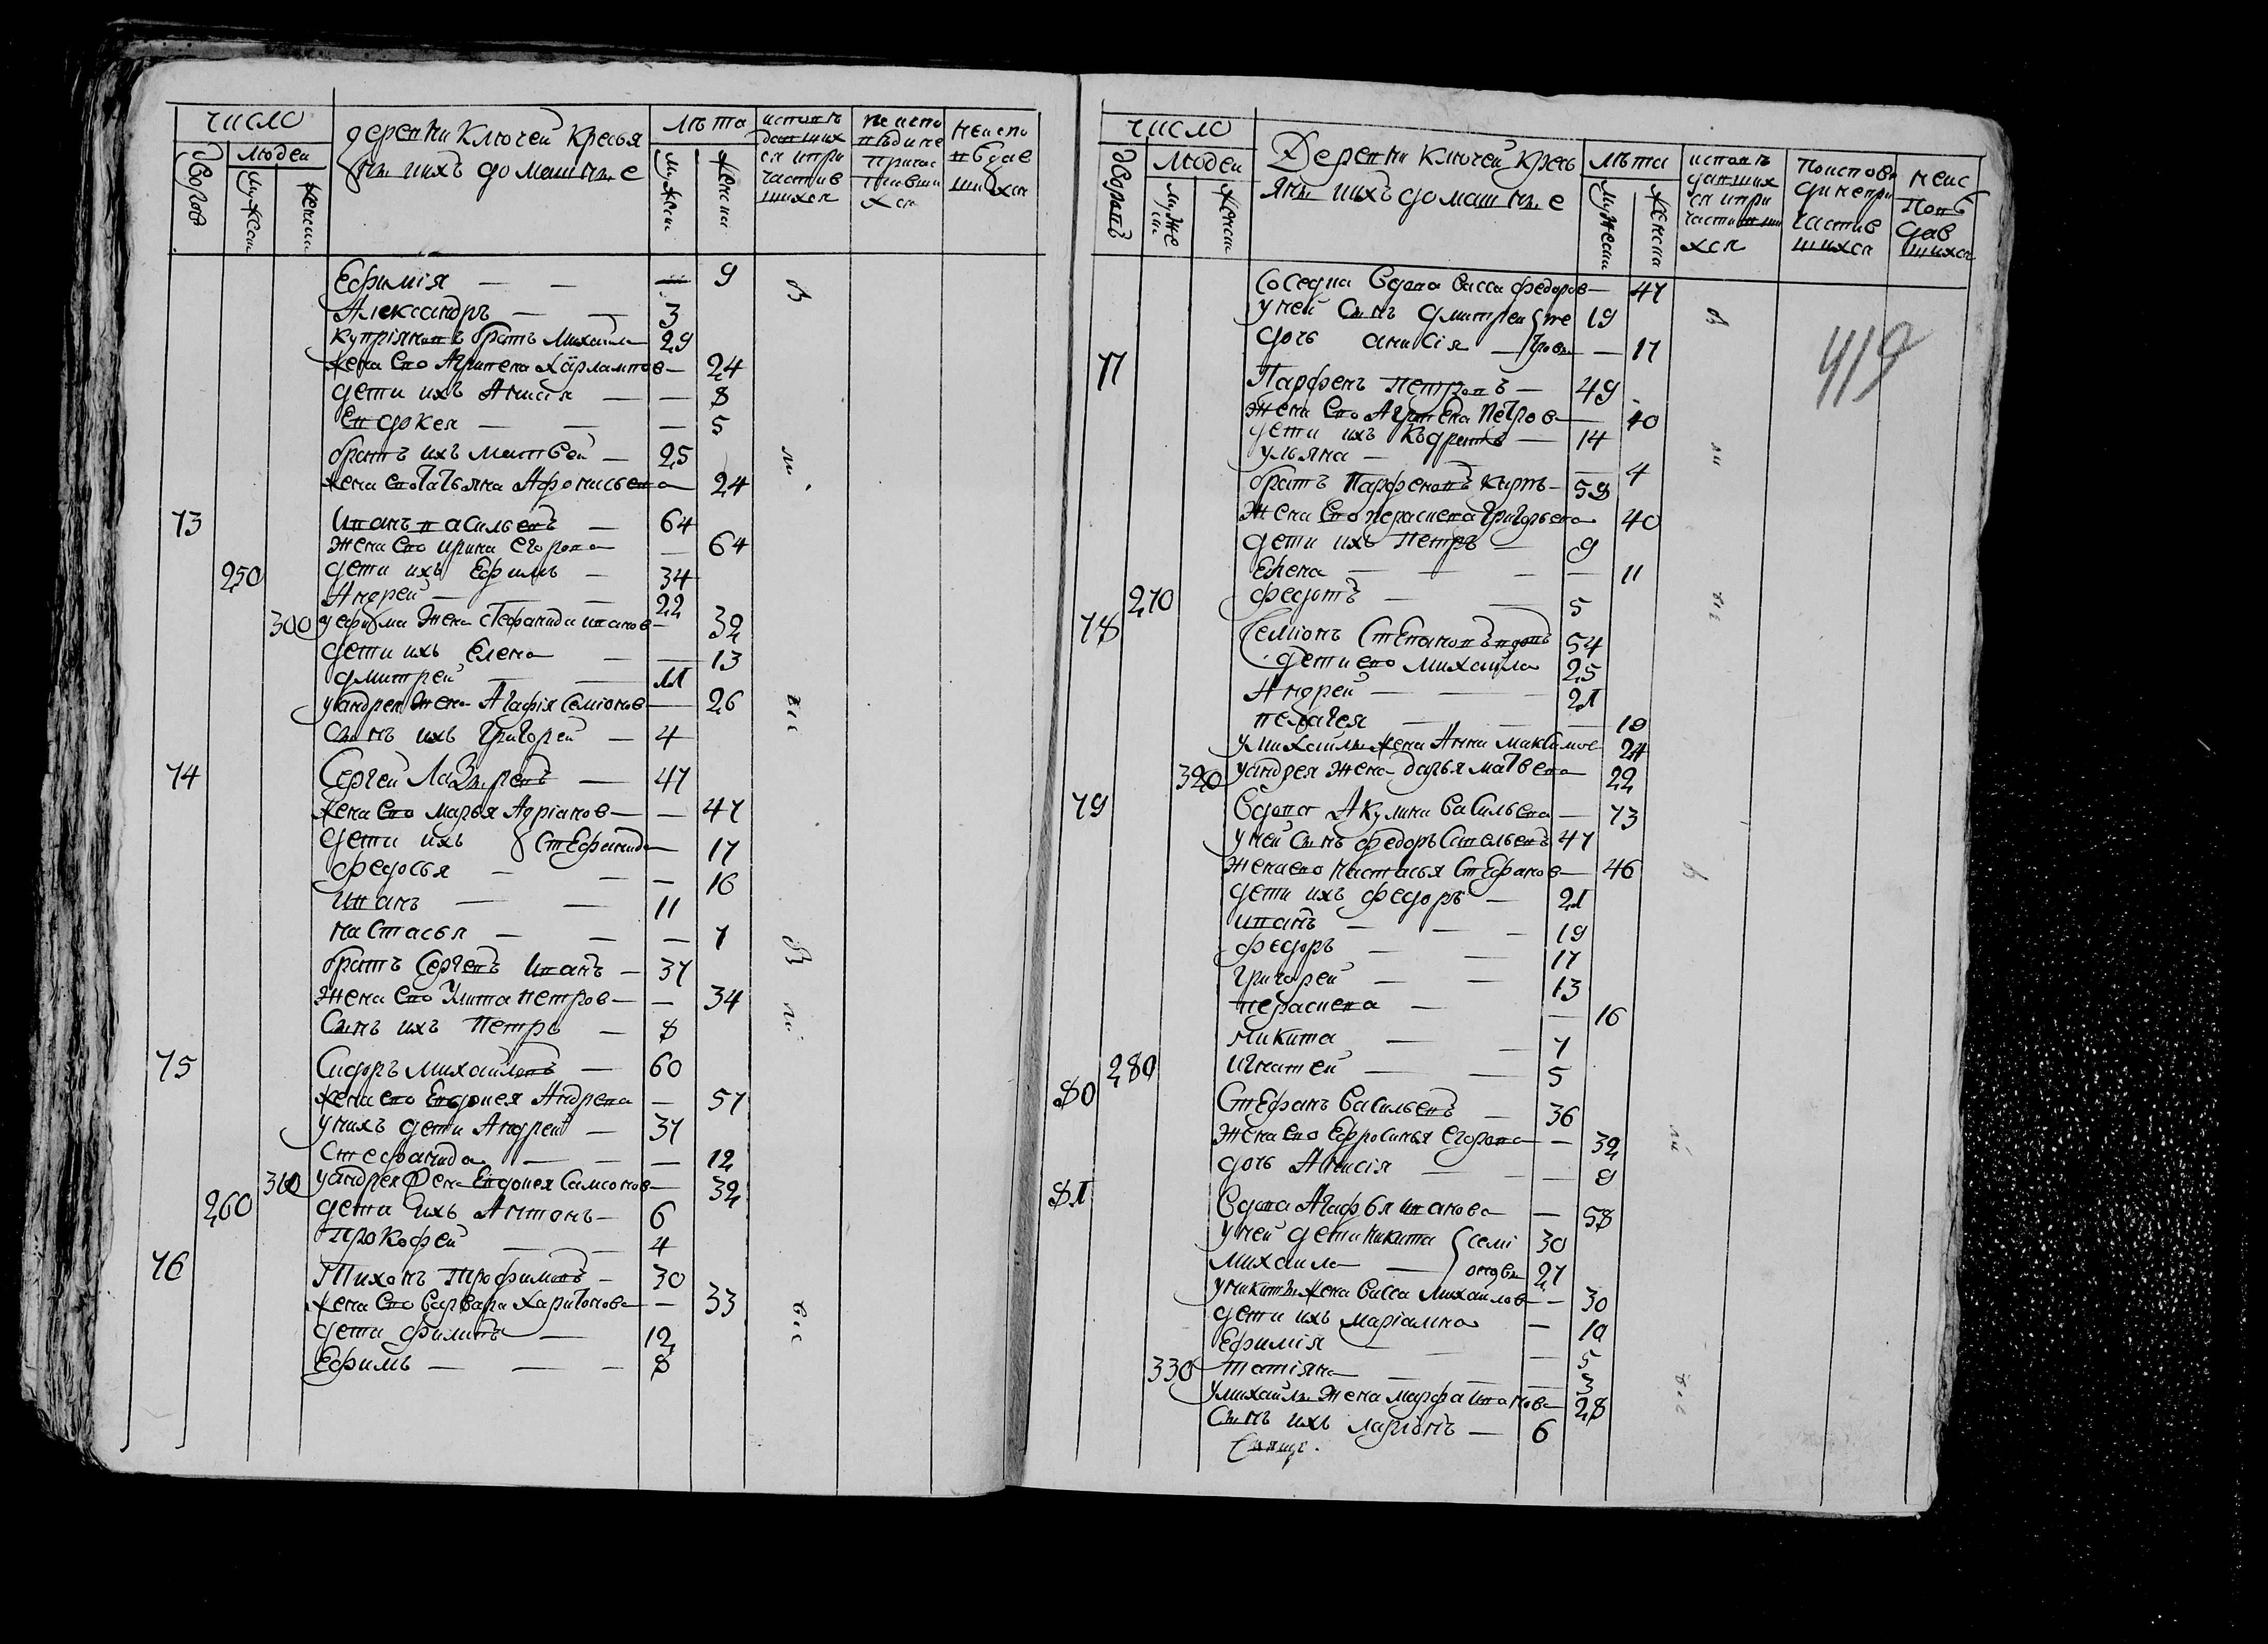 число
деревни Ключей Кресья
не ихъ домашние
лѣта
исповѣ
давших
ся и при
частив
шихся
неиспо
вѣдав
шихся
дворовъ
людей
мужеск
женск
мужеск
женска
Ефимія — — 9
Александръ — — 3
Купріяновъ братъ Михаила 29
жена ево Агрипена Харлампов — 24
дети ихъ Анисія — — 8
Евдокея — — — 5
братъ ихъ Матвей — 25
жена ево Татьяна Афонисьева 24
73 Иванъ васильевъ — 64
жена ево ирина егорова — 64
250 дети ихъ Ефимъ — 34
Андрей — — 22
300 у ефима жена стефанида иванов — 32
дети ихъ Елена — — 13
дмитрей — — 11
у андрея жена Агафія Семіонов — 26
сынъ ихъ григорей — 4
74 Сергей Лазыревъ — 47
жена ево марья Адріанов — — 47
дети ихъ Стефанида — 17
федосья — — — 16
иванъ — — 11
настасья — — — 7
братъ Сергевъ иванъ — 37
жена ево Улита петров — — 34
сынъ ихъ петръ — 8
75 Сидоръ михайловъ — 60
жена ево Евдокея Андрева — 57
у нихъ дети Андрей — 37
Стефанида — — — 12
310 у андрея жена Евдокея Самсонов — 32
260 дети ихъ Антонъ — 6
прокофей — — 4
76 Тихонъ трофимовъ — 30
жена ево варвара харитонова — 33
дети филипъ — 12
Ефимъ — — — 8
число
Деревни ключей кресь
яне ихъ домашние
лѣта
исповѣ
давших
ся и при
хся
неис
повѣ
дав
шихся
дворовъ
людей
муже
ск
женск
мужеск
женска
419
соседка вдова васса федоров — 47
у ней сынъ дмитрей 19
дочь анисія — — 17
77 Парфенъ петровъ — 49
жена ево Агрипена петров — 40
дети ихъ Кодратъ — 14
ульяна — — — 4
братъ Парфеновъ карпъ — 59
жена ево пераскева григорьева 40
дети ихъ петръ — 9
Елена — — — — 11
270 федотъ — — 5
78 Семіонъ Степановъ вдовъ 54
дети ево михайла 25
Андрей — — 21
пелагея — — — 19
у михайлы жена Анна максимов 24
320 у андрея жена дарья матвева 22
79 вдова Акулина васильева — 73
у ней сынъ федоръ савельевъ 47
жена ево настасья стефанов — 46
дети ихъ федоръ — 21
иванъ — — — 19
федоръ — — 17
григорей — — 13
пераскева — — 16
микита — — 7
280 игнатей — — 5
80 Стефанъ васильевъ — 36
жена ево Ефросинья егорова — 32
дочь Анисія — — 9
81 вдова Агафья иванова — 58
у ней дети никита { семі 30
михаила — оновы 27
у никиты жена васса михаилов — 30
дети ихъ маріамна — 10
Ефимія — — — 5
330 татіяна — — — 3
у михайлы жена марфа иванова 28
сынъ ихъ ларіонъ — 6